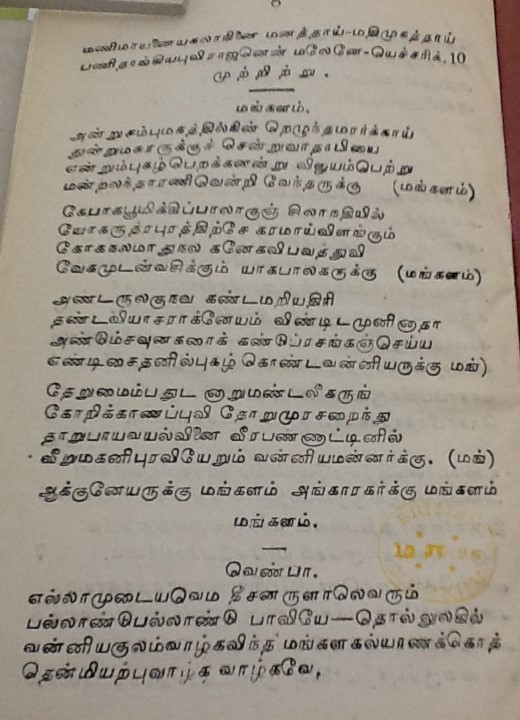 மணிமாயனையகலாதினை மனத்தாய்-மதிமுகத்தாய்
பணிதாங்கியபுவிராஜனென் மலேனே-யெச்சரிக். 10
முற்றிற்று.
மங்களம்.
அன்றுசம்புமகத்தில்கின் றெழுந்தமரர்க்காய்
துன்றுமசுரருக்குச் சென்றுவாதாபியை
என்றும்புகழ்பெறக்கனன்று விஜயம்பெற்று
மன்றலக்தாரணிவென்றி வேந்தருக்கு (மங்களம்)
கேபாகபூமிக்கிப்பாலாகுஞ் சிலாநதியில்
யோகருத்ரபுரத்திற்சே கரமாய்விளங்கும்
கோகநலமாதுநல கனேகவிபவத்துவி
வேகமுடன்வசிக்கும் யாகபாலகருக்கு (மங்களம்)
அண்டருலகுநவ கண்டமறியகிரி
தண்டலியாசராக்னேயம் விண்டிடமுனினாதா
அண்டும்சவுனகனாக் கண்டுப்ரசங்கஞ்செய்ய
எண்டிசைதனில்புகழ் கொண்டவன்னியருக்கு மங்)
தேறுமைம்பதுட னாறுமண்டலீகருங்
கோறிக்காணப்புவி தோறுமுரசறைந்து
தாறுபாயவயல்வினை வீரபண்ணாட்டினில்
வீறுமகனிபுரவியேறும் வன்னியமன்னர்க்கு. (மங்)
ஆக்குனேயருக்கு மங்களம் அங்காரகர்க்கு மங்களம்
மங்களம்.
வெண்பா.
எல்லாமுடையவெம தீசனருளாலெவரும்
பல்லாண்டுபல்லாண்டு பாவியே—தொல்லுலகில்
வன்னியகுலம்வாழ்கவிந்த மங்களகல்யாணக்கொத்
தென்மியற்புவாழ்க வாழ்கவே.